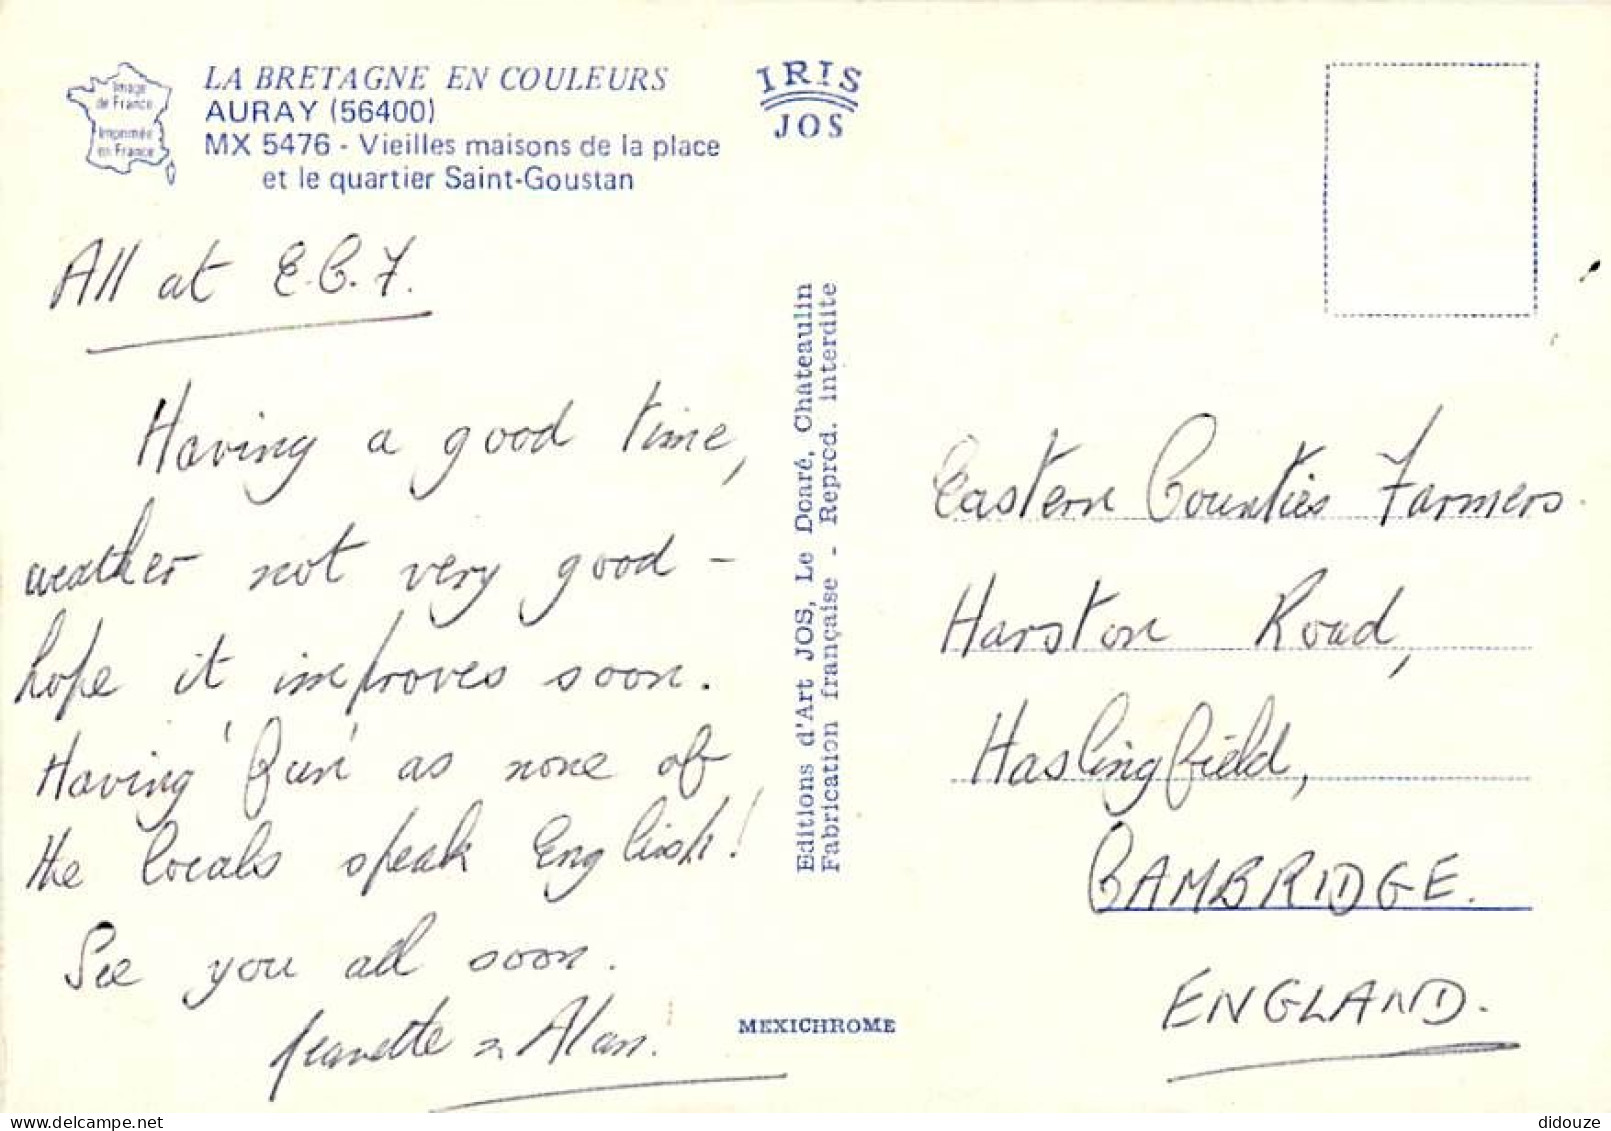 Image
de France
Imprimée
en France
LA BRETAGNE EN COULEURS
AURAY (56400)
MX 5476 - Vieilles maisons de la place
et le quartier Saint-Goustan
IRIS
JOS
All at E.C.F.
Having a good time,
weather not very good -
hope it improves soon.
Having 'fun' as none of
the locals speak English!
See you all soon.
Jeanette & Alan.
Editions d'Art JOS, Le Doaré, Châteaulin
Fabrication française - Reprod. interdite
MEXICHROME
Eastern Counties Farmers.
Harston Road,
Haslingfield,
CAMBRIDGE.
ENGLAND.
didouze